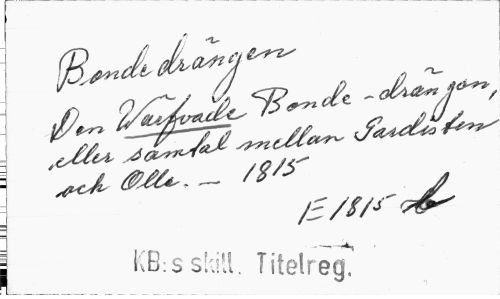 Bondedrängen
Den Wärfvade Bonde-drängen,
eller samtal mellan Gardisten
och Olle. — 1815
E 1815 b
KB:s skill. Titelreg.